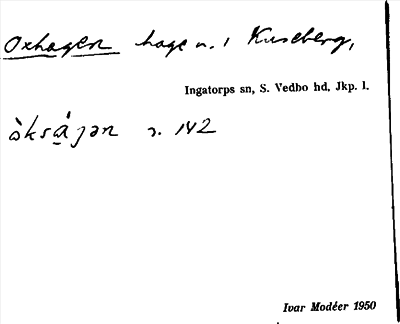 Oxhagen hage n. i Kuseberg,
Ingatorps sn, S. Vedbo hd, Jkp. l.
s. 142
Ivar Modéer 1950